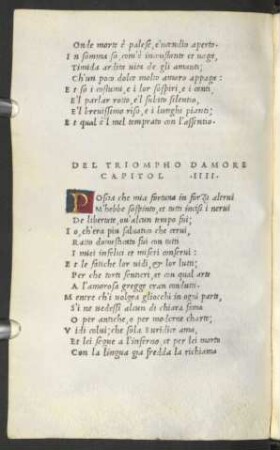 Onde morte è palese, e'ncendio aperto.
In somma so, com'è inconstante et uaga,
Timida ardita uita de gli amanti;
Ch'un poco dolce molto amaro appaga:
Et so i costumi, e i lor sospiri, e i canti,
E'l parlar rotto, e'l subito silentio,
E'l breuissimo riso, e i lunghi pianti;
Et qual è'l mel temprato con l'assentio.
DEL TRIOMPHO DAMORE
CAPITOL .IIII.
POscia che mia fortuna in forza altrui
M'hebbe sospinto, et tutti incisi i nerui
Di libertate, ou'alcun tempo fui;
Io, ch'era piu saluatico che cerui,
Ratto domesticato fui con tutti
I miei infelici et miseri conserui:
Et le fatiche lor uidi, e lor lutti;
Per che torti sentieri, et con qual arte
A l'amorosa gregge eran condutti.
Mentre ch'i uolgea gliocchi in ogni parte,
S'i ne uedessi alcun di chiara fama
O per antiche, o per moderne charte;
Vidi colui; che sola Euridice ama,
Et lei segue a l'inferno, et per lei morto
Con la lingua gia fredda la richiama